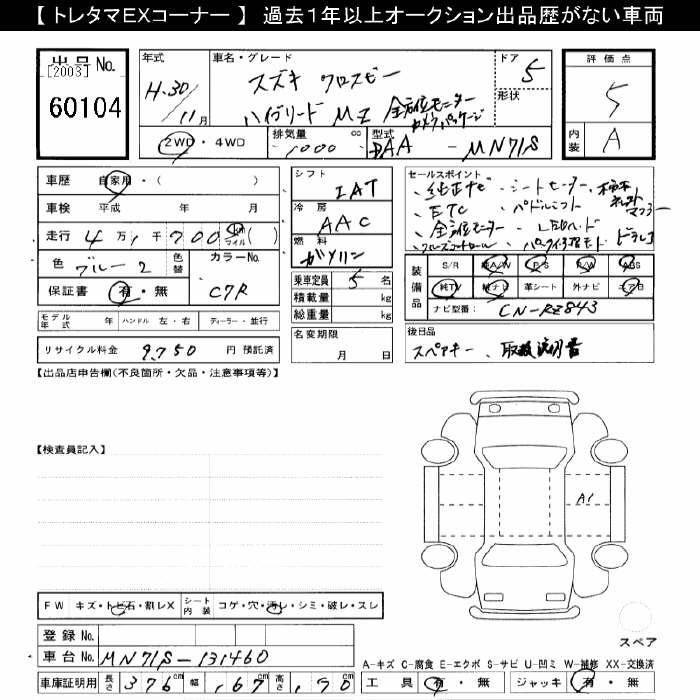 【 トレタマEXコーナー 】 過去1年以上オークション出品歴がない車両
出品No.
[2003]
60104
年式
H.30/11月
車名・グレード
スズキ クロスビー
ハイブリード MZ 全方位モニター
カメラパッケージ
ドア
5
形状
評価点
5
内装
A
2WD・4WD
排気量 cc
1000
型式
DAA - MN71S
車歴 自家用・( )
車検 平成 年 月
走行 4万1千700 km マイル ( )
色 ブルー2 色替
カラーNo. C7R
保証書 有・無
モデル年式 年 ハンドル 左・右 ディーラー・並行
リサイクル料金 9,750 円 預託済
シフト
IAT
冷房
AAC
燃料
ガソリン
乗車定員 5 名
積載量 kg
総重量 kg
名変期限
月 日
セールスポイント
・純正ナビ ・シートヒーター
・ETC ・パドルシフト
・全方位モニター ・LEDヘッド
・クルーズコントロール ・ドラレコ
装備品
S/R 純A/W P/S P/W ABS
純TV 純ナビ 革シート 外ナビ エアB
ナビ型番: CN-RZ843
後日品
スペアキー、取扱説明書
【出品店申告欄(不良箇所・欠品・注意事項等)】
【検査員記入】
A1
FW キズ・トビ石・割レX シート内装 コゲ・穴・汚レ・シミ・破レ・スレ
登録No.
車台No. MN71S-131460
車庫証明用 長さ 376 cm 幅 167 cm 高さ 170 cm
スペア
A-キズ C-腐食 E-エクボ S-サビ U-凹ミ W-補修 XX-交換済
工具 有・無 ジャッキ 有・無